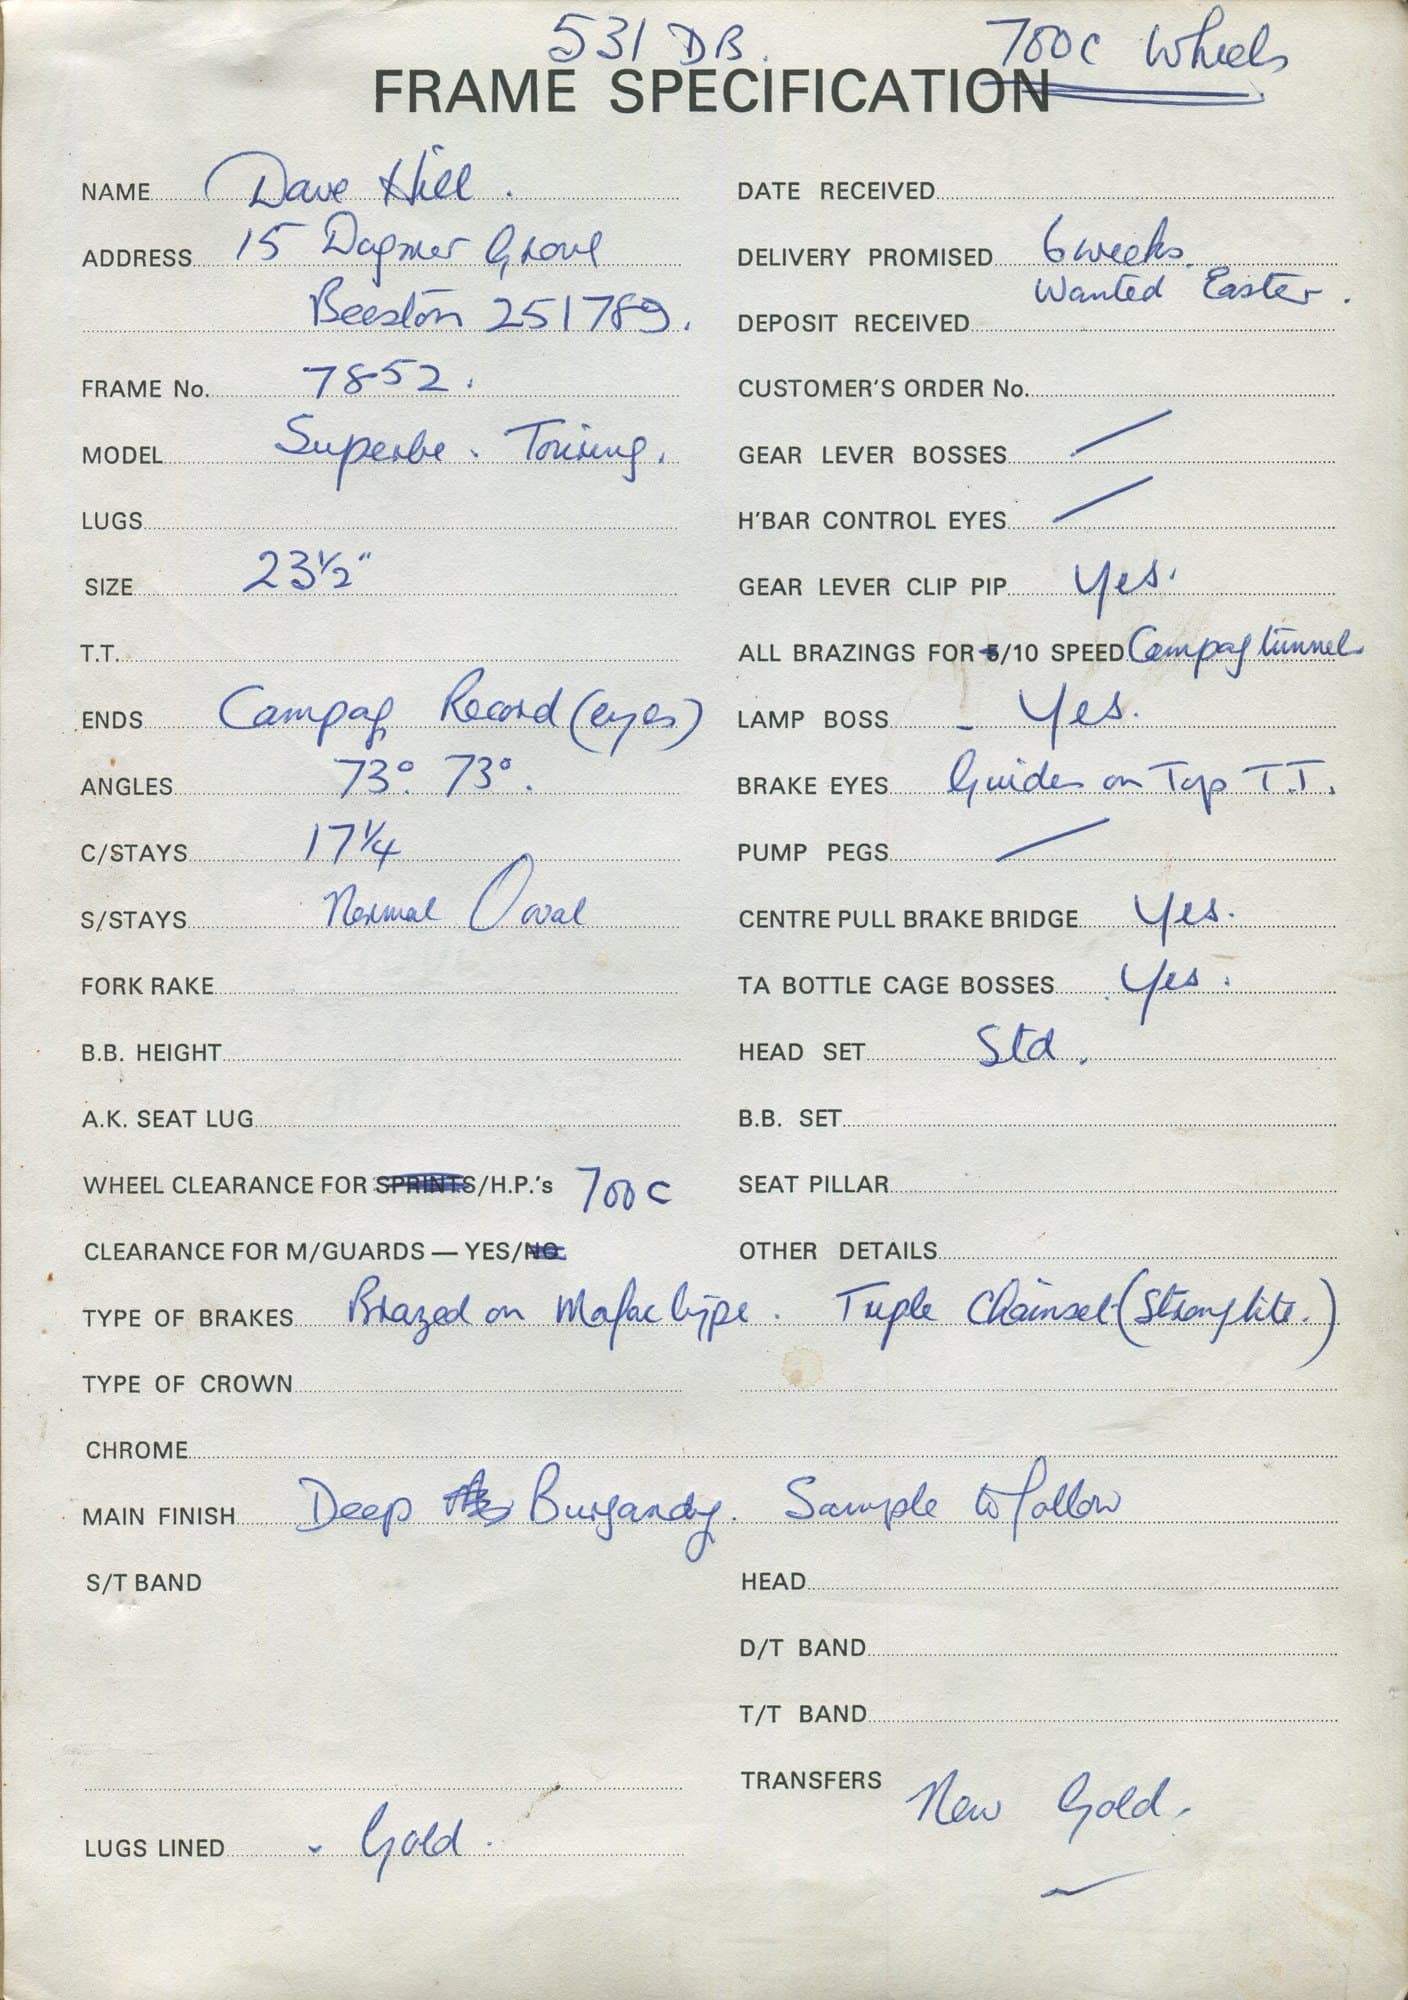 531 DB. 700c Wheels
FRAME SPECIFICATION
NAME Dave Hill.
ADDRESS 15 Dagmar Grove
Beeston 251789.
FRAME No. 7852.
MODEL Superbe. Touring.
LUGS
SIZE 23½"
T.T.
ENDS Campag Record (eyes)
ANGLES 73°. 73°.
C/STAYS 17¼
S/STAYS Normal Oval
FORK RAKE
B.B. HEIGHT
A.K. SEAT LUG
WHEEL CLEARANCE FOR SPRINTS/H.P.'s 700c
CLEARANCE FOR M/GUARDS — YES/NO
TYPE OF BRAKES Brazed on Mafac type.
TYPE OF CROWN
CHROME
MAIN FINISH Deep Burgandy. Sample to follow
S/T BAND
LUGS LINED - Gold.
DATE RECEIVED
DELIVERY PROMISED 6 weeks.
Wanted Easter.
DEPOSIT RECEIVED
CUSTOMER'S ORDER No.
GEAR LEVER BOSSES /
H'BAR CONTROL EYES /
GEAR LEVER CLIP PIP Yes.
ALL BRAZINGS FOR 5/10 SPEED Campag tunnel
LAMP BOSS - Yes.
BRAKE EYES Guides on Top T.T.
PUMP PEGS /
CENTRE PULL BRAKE BRIDGE Yes.
TA BOTTLE CAGE BOSSES Yes.
HEAD SET Std.
B.B. SET
SEAT PILLAR
OTHER DETAILS
Triple Chainset (Stronglite.)
HEAD
D/T BAND
T/T BAND
TRANSFERS New Gold.